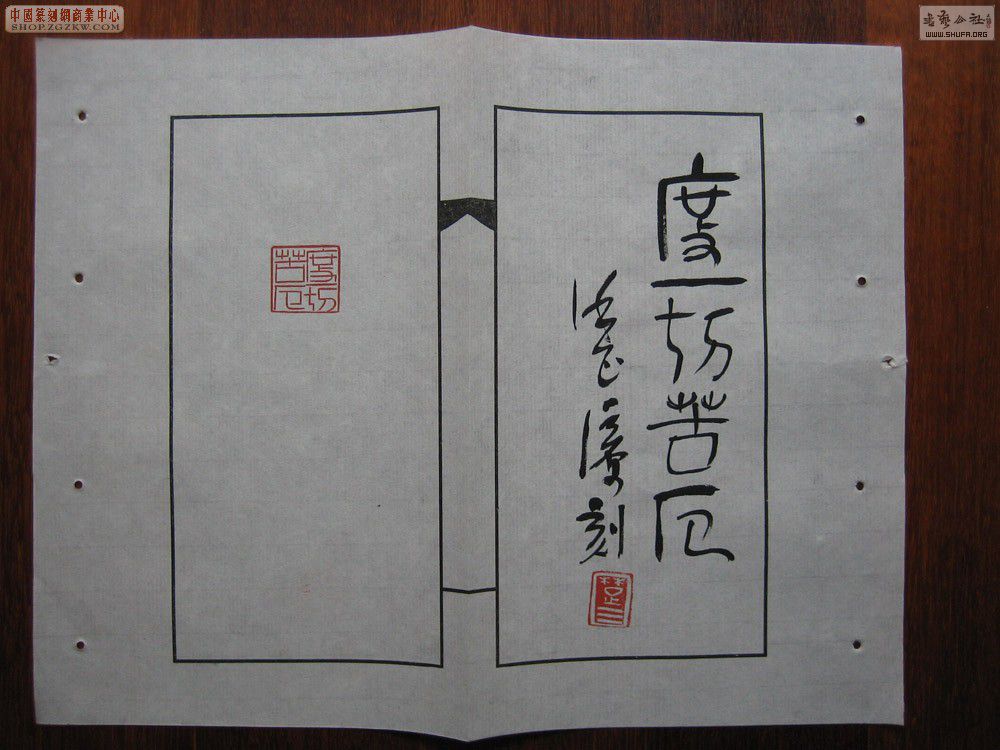 中國篆刻網商業中心
SHOP.ZGZKW.COM
书艺公社
WWW.SHUFA.ORG
度一切苦厄
刻
度一切苦厄